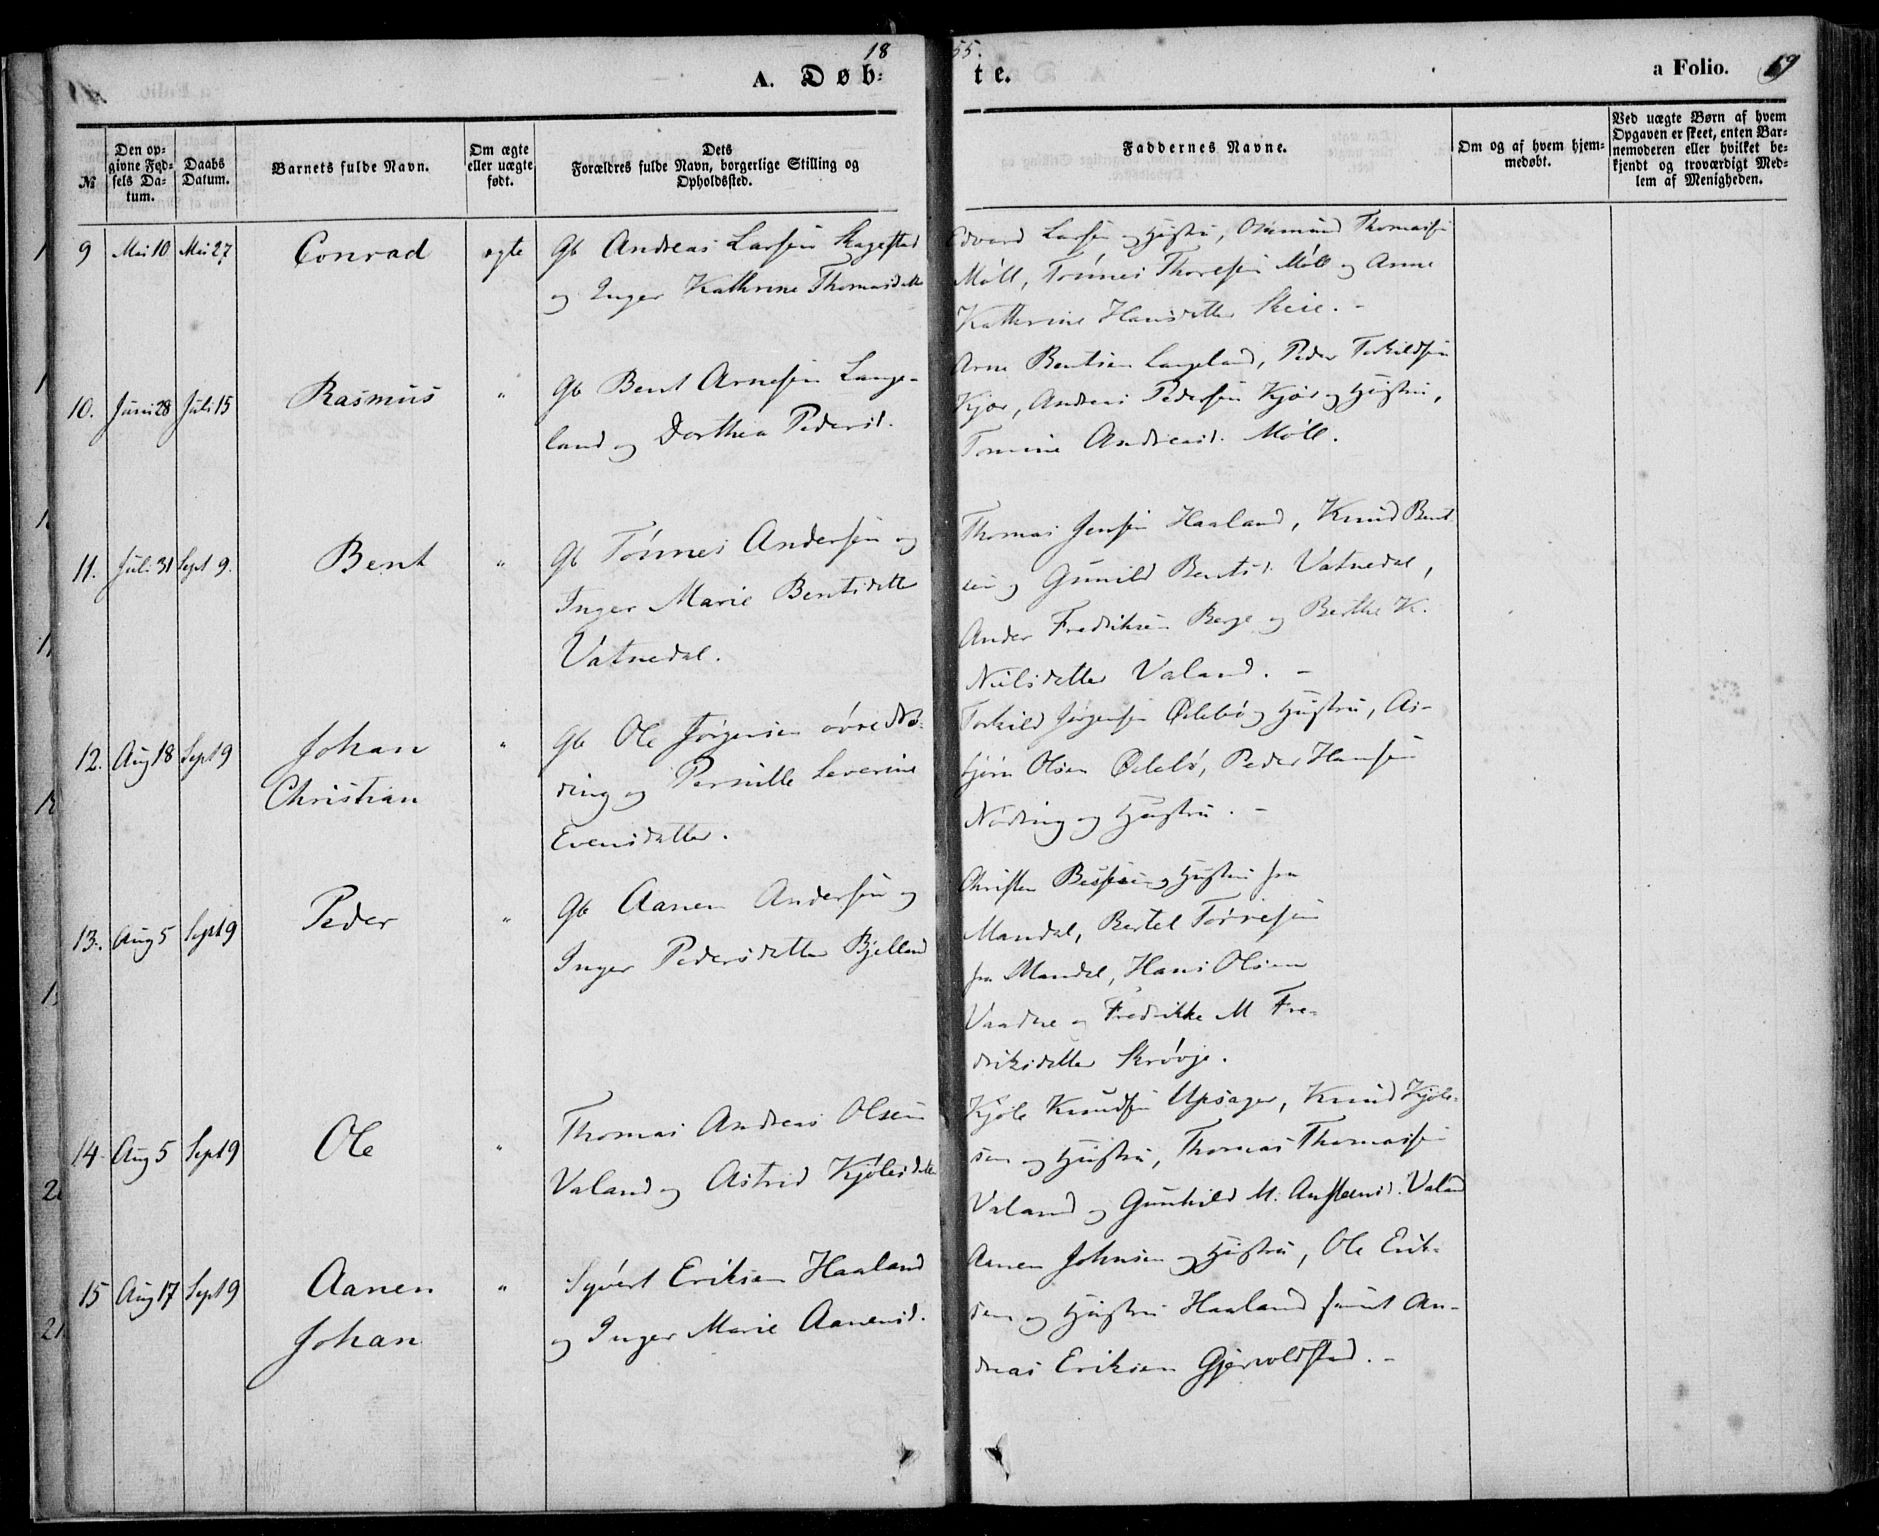 1855.
A. Døbte.
a Folio. 69
№
Den opgivne Fødsels Datum.
Daabs Datum.
Barnets fulde Navn.
Om ægte eller uægte født.
Dets Forældres fulde Navn, borgerlige Stilling og Opholdssted.
Faddernes Navne.
Om og af hvem hjemmedøbt.
Ved uægte Børn af hvem Opgaven er skeet, enten Barnemoderen eller hvilket bekjendt og troværdigt Medlem af Menigheden.
9 Mai 10 Mai 27 Conrad ægte Gb Andreas Larsen Skagestad
og Inger Kathrine Thomasdtt
Edvard Larsen og Hustru, Thomassen
Møll, Tønnes Thoresen Møll og Anne
Kathrine Hansdatter Skeie. -
10. Juni 28 Juli 15 Rasmus " Gb Bent Arnesen Lange-
land og Dorthea Pedersd.
Arne Bentsen Langeland, Peder Terkildsen
Kjær, Andreas Pedersen Kjær og Hustru,
Tomine Andreasd. Møll.
11. Juli 31 Sept 9. Bent " Gb Tønnes Andersen og
Inger Marie Bentsdatter
Vatnedal.
Thomas Jensen Haaland, Knud Bent-
sen og Gunild Bentsd. Vatnedal,
Ander Fredriksen Berge og Berthe K.
Nielsdatter Valand. -
12. Aug 18 Sept 9 Johan
Christian
" Gb Ole Jørgensen øvre Nø-
ding og Pernille Severine
Evensdatter.
Torkild Jørgensen Øelebø og Hustru, As-
bjørn Olsen Øelebø, Peder Hansen
Nøding og Hustru. -
13. Aug 5 Sept 9 Peder " Gb Aanen Andersen og
Inger Pedersdatter Bjelland
Christen og Hustru fra
Mandal, Bertel Tørresen
fra Mandal, Hans Olsen
Vaadne og Fredrikke M Fre-
driksdatter Skrøvje.
14 Aug 5 Sept 9 Ole " Thomas Andreas Olsen
Valand og Astrid Kjølesdatt
Kjøle Knudsen Upsager, Knud Kjøle-
sen og Hustru, Thomas Thomassen
Valand og Gunhild M. Austensd. Valand
15 Aug 17 Sept 9 Aanen
Johan
" Syvert Eriksen Haaland
og Inger Marie Aanensd.
Aanen Johnsen og Hustru, Ole Erik-
sen og Hustru Haaland samt An-
dreas Eriksen Gjervoldstad. -